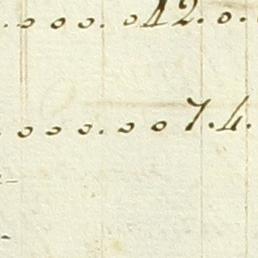 . o o o . o 42 . o .
. o o o . o o 7 . 4 .